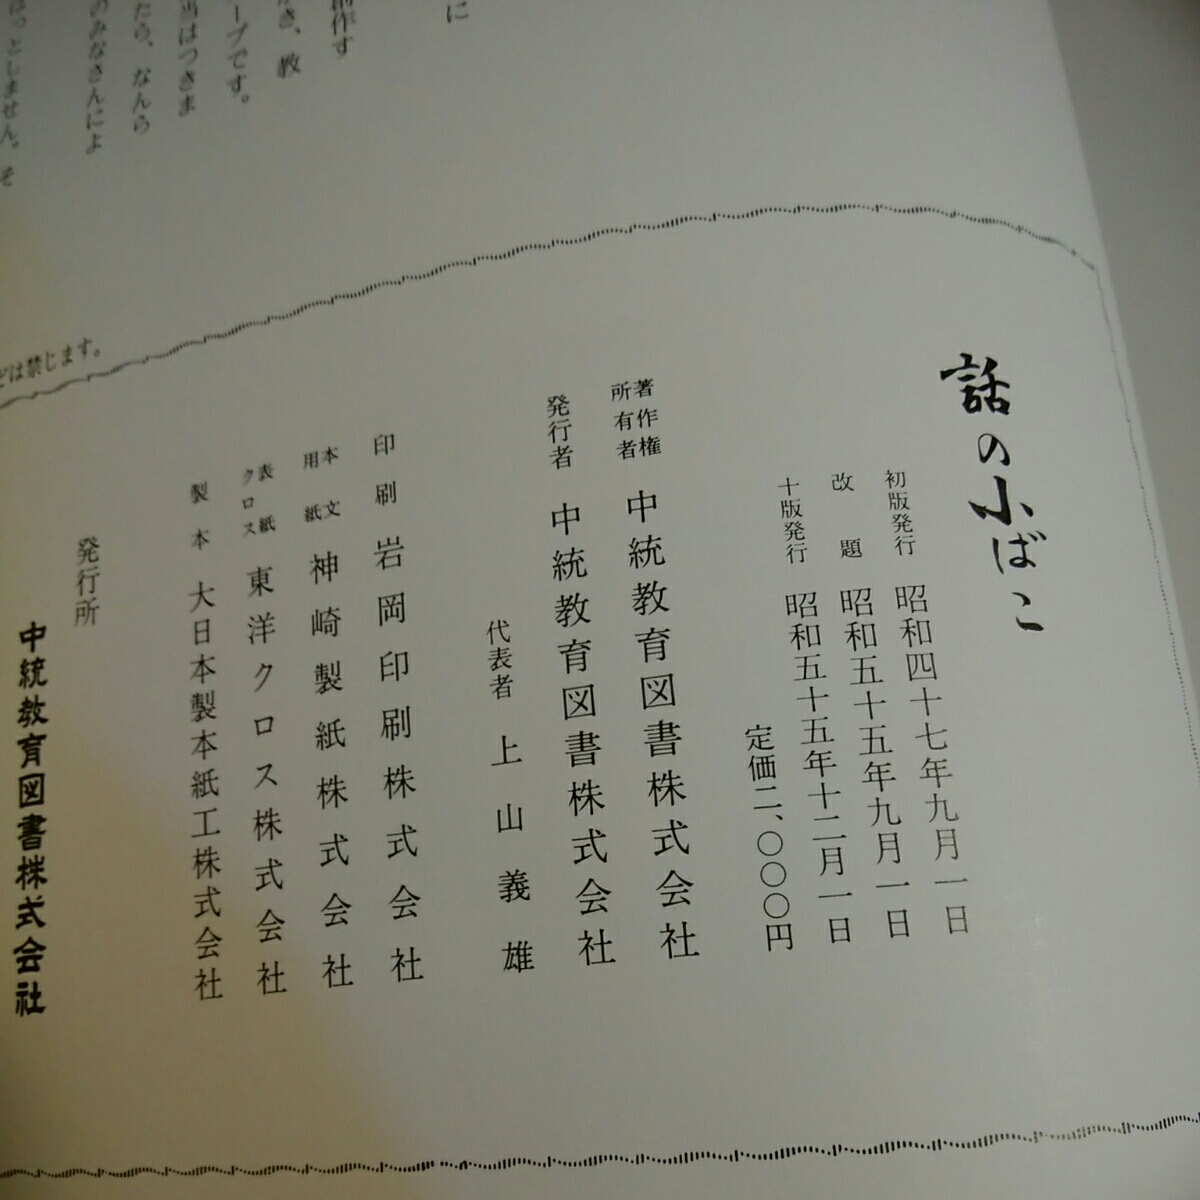 に
創作す
き、教
ープです。
当はつきま
たら、なんら
のみなさんによ
はっとしません。そ
どは禁じます。
話の小ばこ
初版発行 昭和四十七年九月一日
改題 昭和五十五年九月一日
十版発行 昭和五十五年十二月一日
定価二、〇〇〇円
著作権所有者 中統教育図書株式会社
発行者 中統教育図書株式会社
代表者 上山義雄
印刷 岩岡印刷株式会社
本文用紙 神崎製紙株式会社
表紙クロス 東洋クロス株式会社
製本 大日本製本紙工株式会社
発行所
中統教育図書株式会社